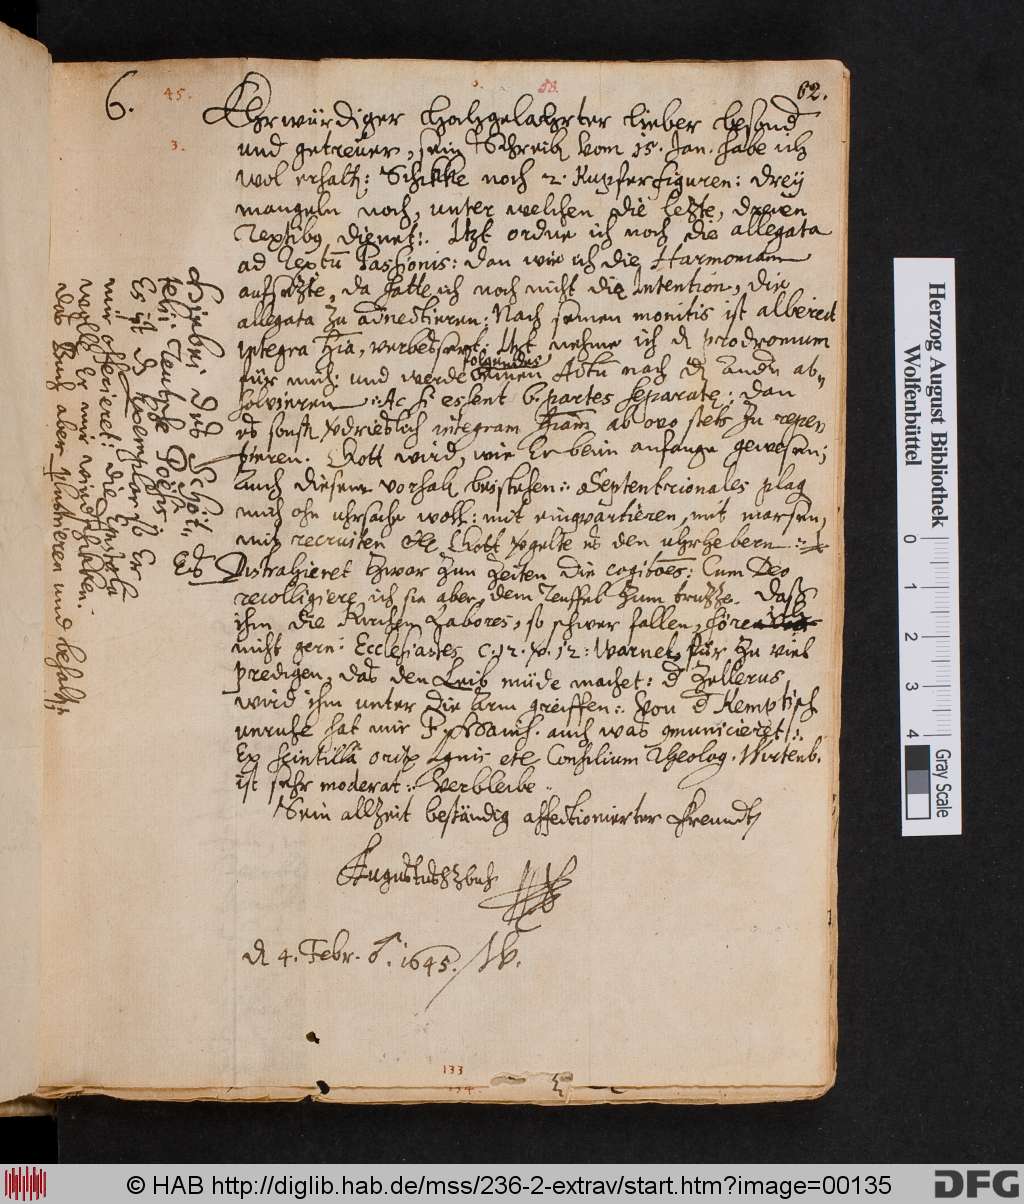 6. 45. 3. 58. 62.
Ehrwürdiger Hochgelahrter lieber besond
und getreuer, sein Schreib vom 15. Jan. habe ich
wol erhalt: Schikke noch 2. Kupferfiguren: drey
mangeln noch, unter welchen die letzte, dreien
Textibq dienet:. Itzt ordne ich noch die allegata
ad Textū Passionis: dan wie ich die Harmoniam
aufsetzte, da hatte ich noch nicht die Intention, die
allegata zu adnectieren: Nach seinen monitis ist albereit
integra Hia, verbessert: Itzt nehme ich d prodromum
für mich: und werde folgendes einen Actū nach d andn ab
solvieren :. Ac si essent 6. partes separatę: dan
es sonst vdrieslich integram Hiam ab ovo stets zu repe
tieren. Gott wird, wie Er beim anfange gewesen;
auch diesem vorhab beistehen:. Septentrionales plag
mich ohn uhrsache woll: mit einqvartieren, mit marsen,
mit recruiten etc Gott vgelte es den uhrhebern :.
Es
Distrahieret zwar zun zeiten die cogitōes: Cum Deo
recolligiere ich sie aber, dem Teuffel zum trutze. Dasz
ihm die Kirchen Labores, so schwer fallen, höre ich
nicht gern: Ecclesiastes c. 12. v. 12: Warnet, für zu viel
predigen, das den Leib müde machet: d Zellerus
wird ihm unter die Arm greiffen:. Von d Kemptisch
unruhe hat mir auch was
Ex scintillâ orit ignis etc Consilium Theolog. Wirtenb.
ist sehr moderat:. Verbleibe
Sein allzeit beständig affectionierter Freundt
Augustus HZBuL
d 4. Febr. 1645.
Hiebei des Schöt=
telii Teutsche Poësis
Es ist d Exemplar so Er
mir offerieret: die Epistola
wolle Er mir wiedschikken:
das Buch aber und behalt
133
134
Herzog August Bibliothek
Wolfenbüttel
0 1 2 3 4
Gray Scale
© HAB http://diglib.hab.de/mss/236-2-extrav/start.htm?image=00135
DFG